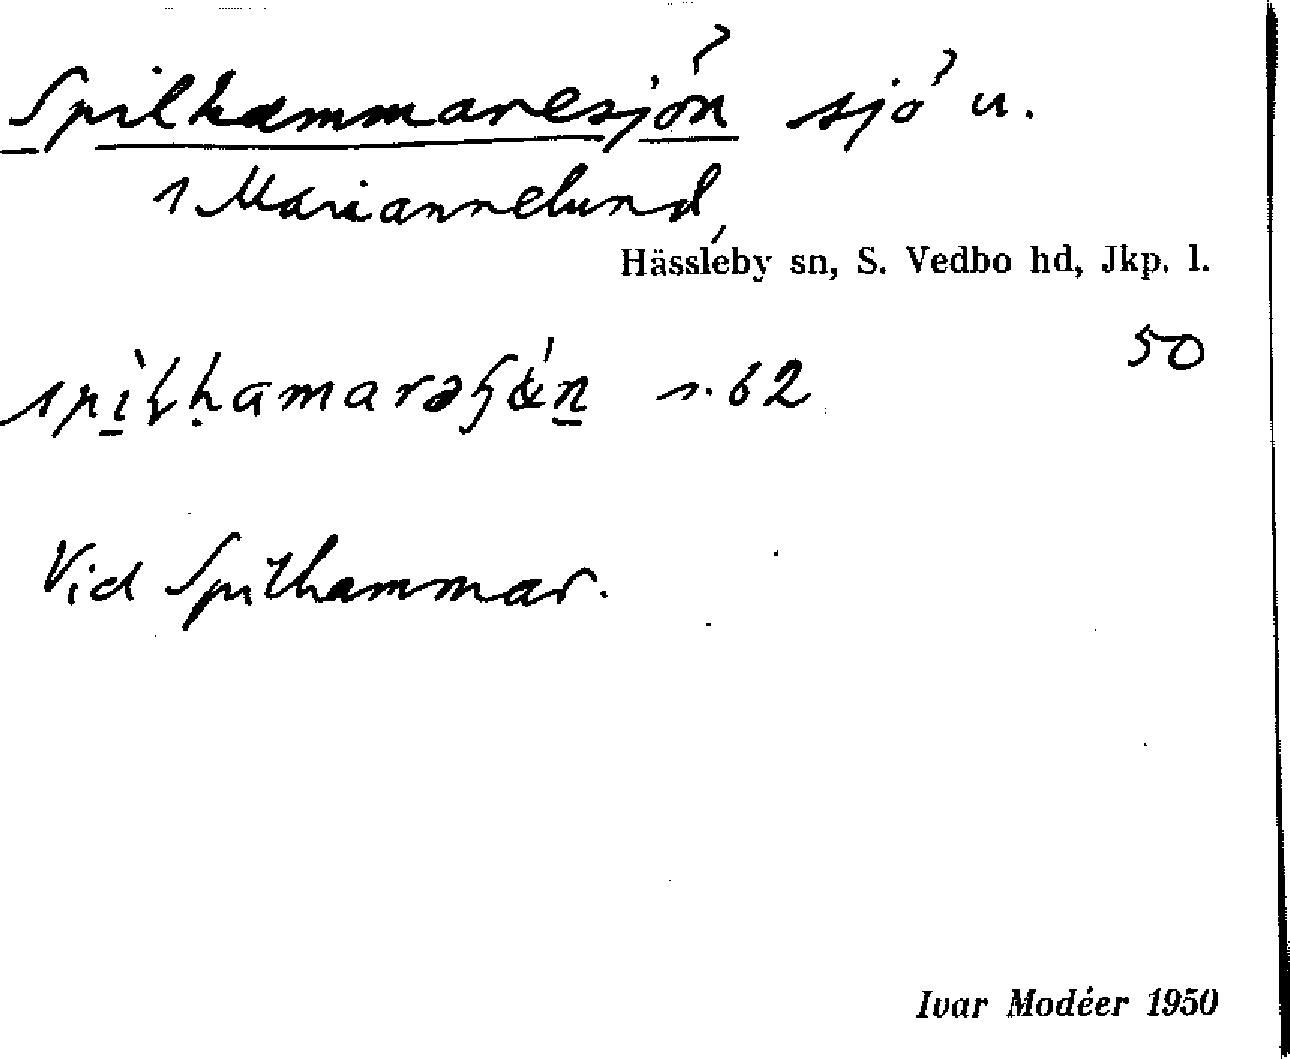 Spilhammaresjön sjö u.
1 Mariannelund,
Hässleby sn, S. Vedbo hd, Jkp. l.
50
s. 62
Vid Spilhammar.
Ivar Modéer 1950